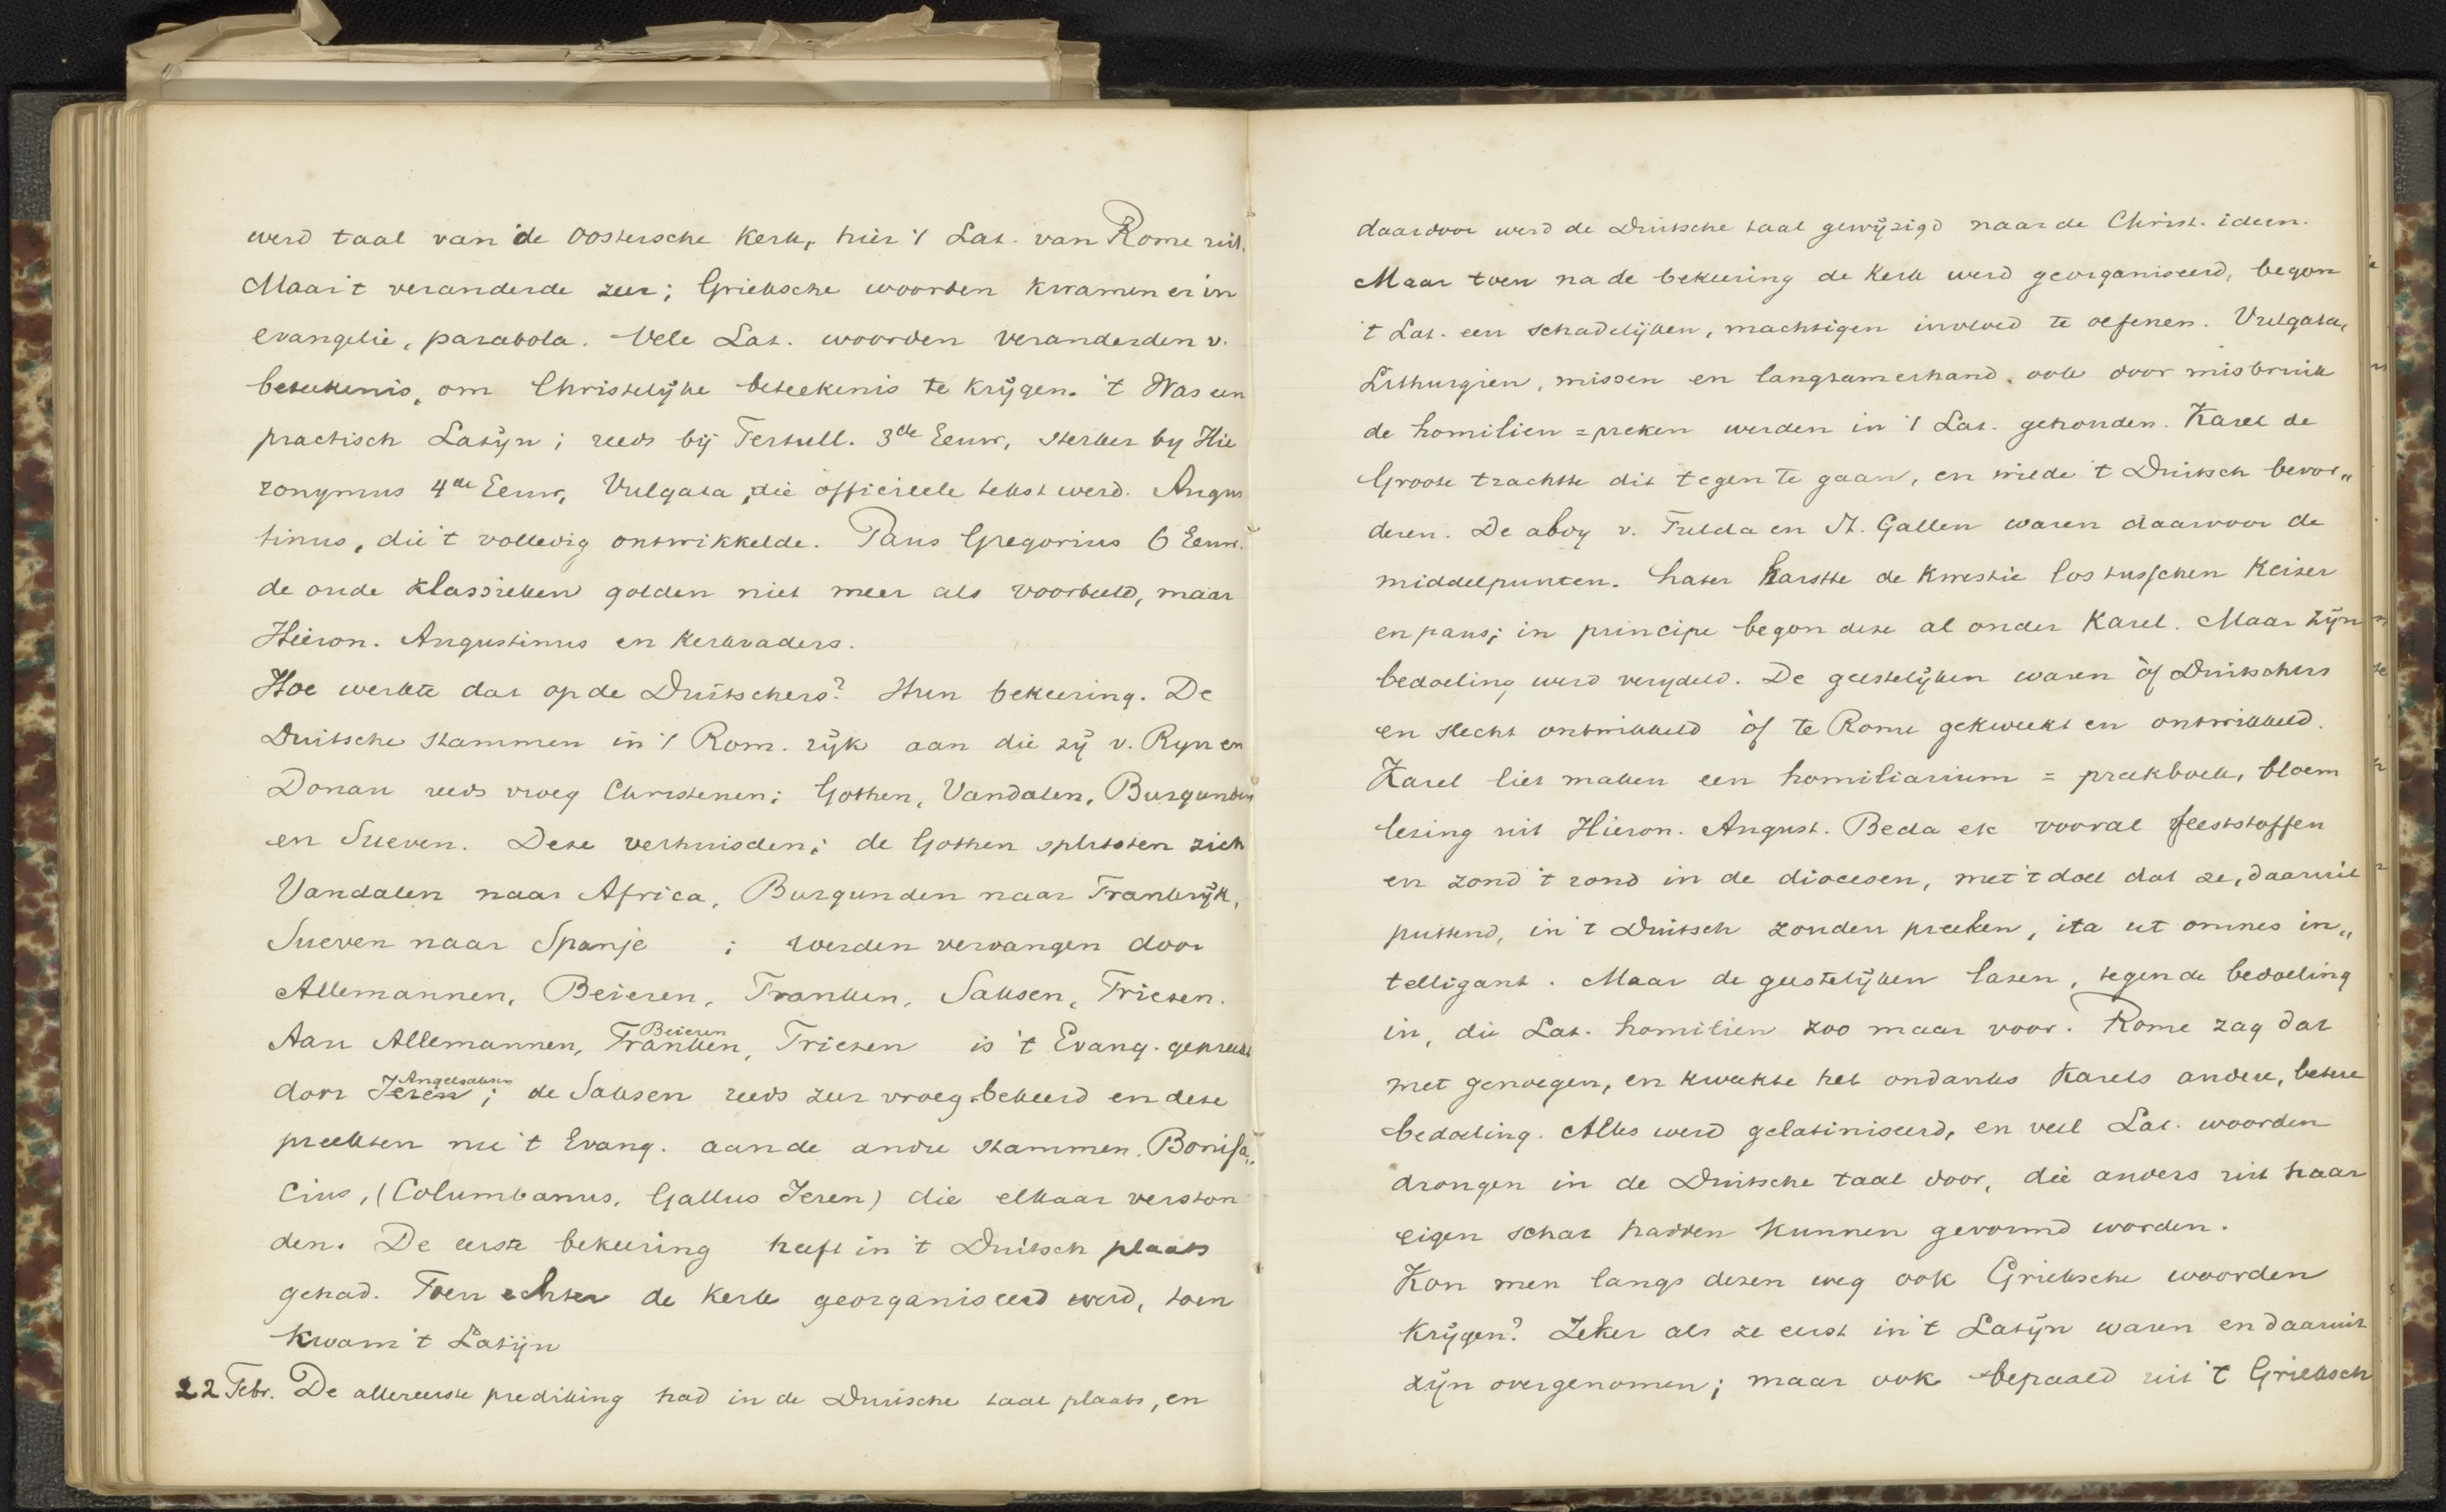 werd taal van de Oostersche kerk, hier 't Lat. van Rome uit.
Maar 't veranderde zeer; Grieksche woorden kwamen er in
evangelie, parabola. Vele Lat. woorden veranderden v.
beteekenis, om Christelijke beteekenis te krijgen. 't Was een
practisch Latijn; reeds bij Tertull. 3de Eeuw, sterker by Hie
ronymus 4de Eeuw, Vulgata, die officieele tekst werd. Augus
tinus, die 't volledig ontwikkelde. Paus Gregorius 6 Eeuw.
de oude klassieken golden niet meer als voorbeeld, maar
Hieron. Augustinus en kerkvaders.
Hoe werkte dat op de Duitschers? Hun bekeering. De
Duitsche stammen in 't Rom. rijk aan die zij v. Ryn en
Donau reeds vroeg Christenen; Gothen, Vandalen, Burgunden
en Sueven. Deze verhuisden; de Gothen splitsten zich
Vandalen naar Africa, Burgunden naar Frankrijk,
Sueven naar Spanje ; werden vervangen door
Allemannen, Beieren, Franken, Saksen, Friezen.
Beieren
Aan Allemannen, Franken, Friezen is 't Evang. gepreekt
Angelsaksen
door Ieren; de Saksen reeds zeer vroeg bekeerd en deze
preekten nu 't Evang. aan de andre stammen. Bonifa„
cius, (Columbanus, Gallus Ieren) die elkaar verston
den. De eerste bekeering heeft in 't Duitsch plaats
gehad. Toen echter de kerk georganiseerd werd, toen
kwam 't Latijn
22 Febr. De allereerste prediking had in de Duitsche taal plaats, en
daardoor werd de Duitsche taal gewijzigd naar de Christ. ideen.
Maar toen na de bekeering de kerk werd georganiseerd, begon
't Lat. een schadelijken, machtigen invloed te oefenen. Vulgata,
Lithurgien, missen en langzamerhand, ook door misbruik
de homilien = preken werden in 't Lat. gehouden. Karel de
Groote trachtte dit tegen te gaan, en wilde 't Duitsch bevor„
deren. De abdy v. Fulda en St. Gallen waren daarvoor de
middelpunten. Later barstte de kwestie los tusschen Keizer
en paus; in principe begon deze al onder Karel. Maar zijn
bedoeling werd verydeld. De geestelijken waren òf Duitschers
en slecht ontwikkeld òf te Rome gekweekt en ontwikkeld.
Karel liet maken een homiliarium = preekboek, bloem
lezing uit Hieron. August. Beda etc vooral feeststoffen
en zond 't rond in de diocesen, met 't doel dat ze, daaruit
puttend, in 't Duitsch zouden preeken, ita ut omnes in„
telligant. Maar de geestelijken lazen, tegen de bedoeling
in, die Lat. homilien zoo maar voor. Rome zag dat
met genoegen, en kweekte het ondanks Karels andere, betere
bedoeling. Alles werd gelatiniseerd, en veel Lat. woorden
drongen in de Duitsche taal door, die anders uit haar
eigen schat hadden kunnen gevormd worden.
Kon men langs dezen weg ook Grieksche woorden
krijgen? Zeker als ze eerst in 't Latijn waren en daaruit
zijn overgenomen; maar ook bepaald uit 't Grieksch